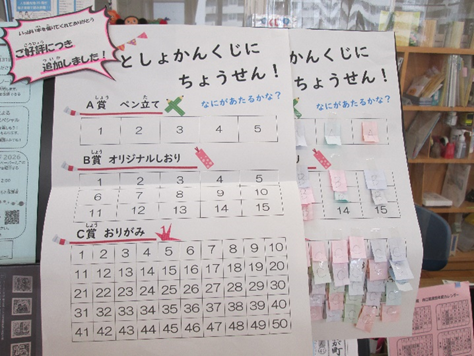 いっぱい本を借りてくれてありがとう
ご好評につき
追加しました!
としょかんくじに
ちょうせん!
なにがあたるかな?
A賞 ペン立て
1 2 3 4 5
B賞 オリジナルしおり
1 2 3 4 5
6 7 8 9 10
11 12 13 14 15
C賞 おりがみ
1 2 3 4 5 6 7 8 9 10
11 12 13 14 15 16 17 18 19 20
21 22 23 24 25 26 27 28 29 30
31 32 33 34 35 36 37 38 39 40
41 42 43 44 45 46 47 48 49 50
かんくじに
ちょうせん!
なにがあたるかな?
14 15